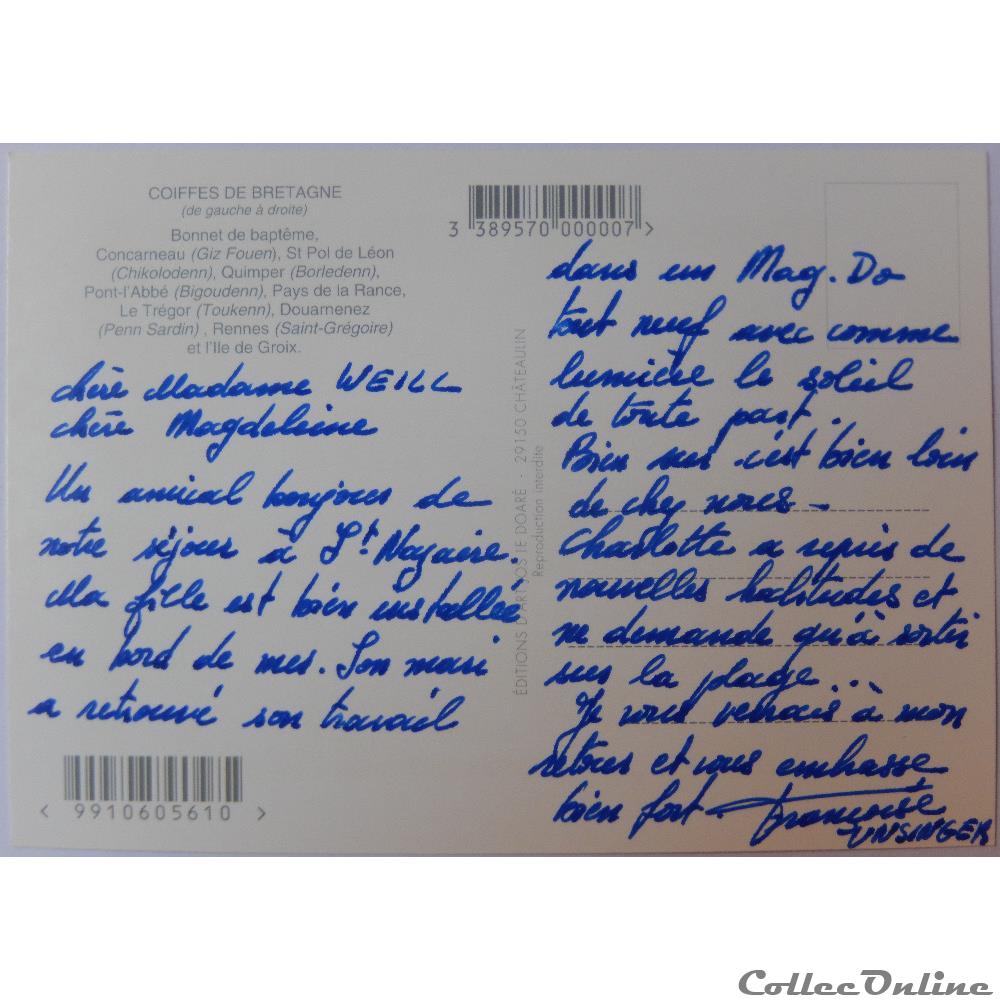 COIFFES DE BRETAGNE
(de gauche à droite)
Bonnet de baptême,
Concarneau (Giz Fouen), St Pol de Léon
(Chikolodenn), Quimper (Borledenn),
Pont-l'Abbé (Bigoudenn), Pays de la Rance,
Le Trégor (Toukenn), Douarnenez
(Penn Sardin) , Rennes (Saint-Grégoire)
et l'Ile de Groix.
3 389570 000007 >
chère Madame WEILL
chère Magdeleine
Un amical bonjour de
notre séjour à St Nazaire.
Ma fille est bien installée
en bord de mer. Son mari
a retrouvé son travail
< 9910605610 >
ÉDITIONS D'ART JOS LE DOARÉ - 29150 CHÂTEAULIN
Reproduction interdite
dans un Mag. Do
tout neuf avec comme
lumière le soleil
de toute part.
Bien sur c'est bien loin
de chez nous -
Charlotte a repris de
nouvelles habitudes et
ne demande qu'à sortir
sur la plage...
Je vous verrais à mon
retour et vous embrasse
bien fort Françoise
UNSINGER
CollecOnline